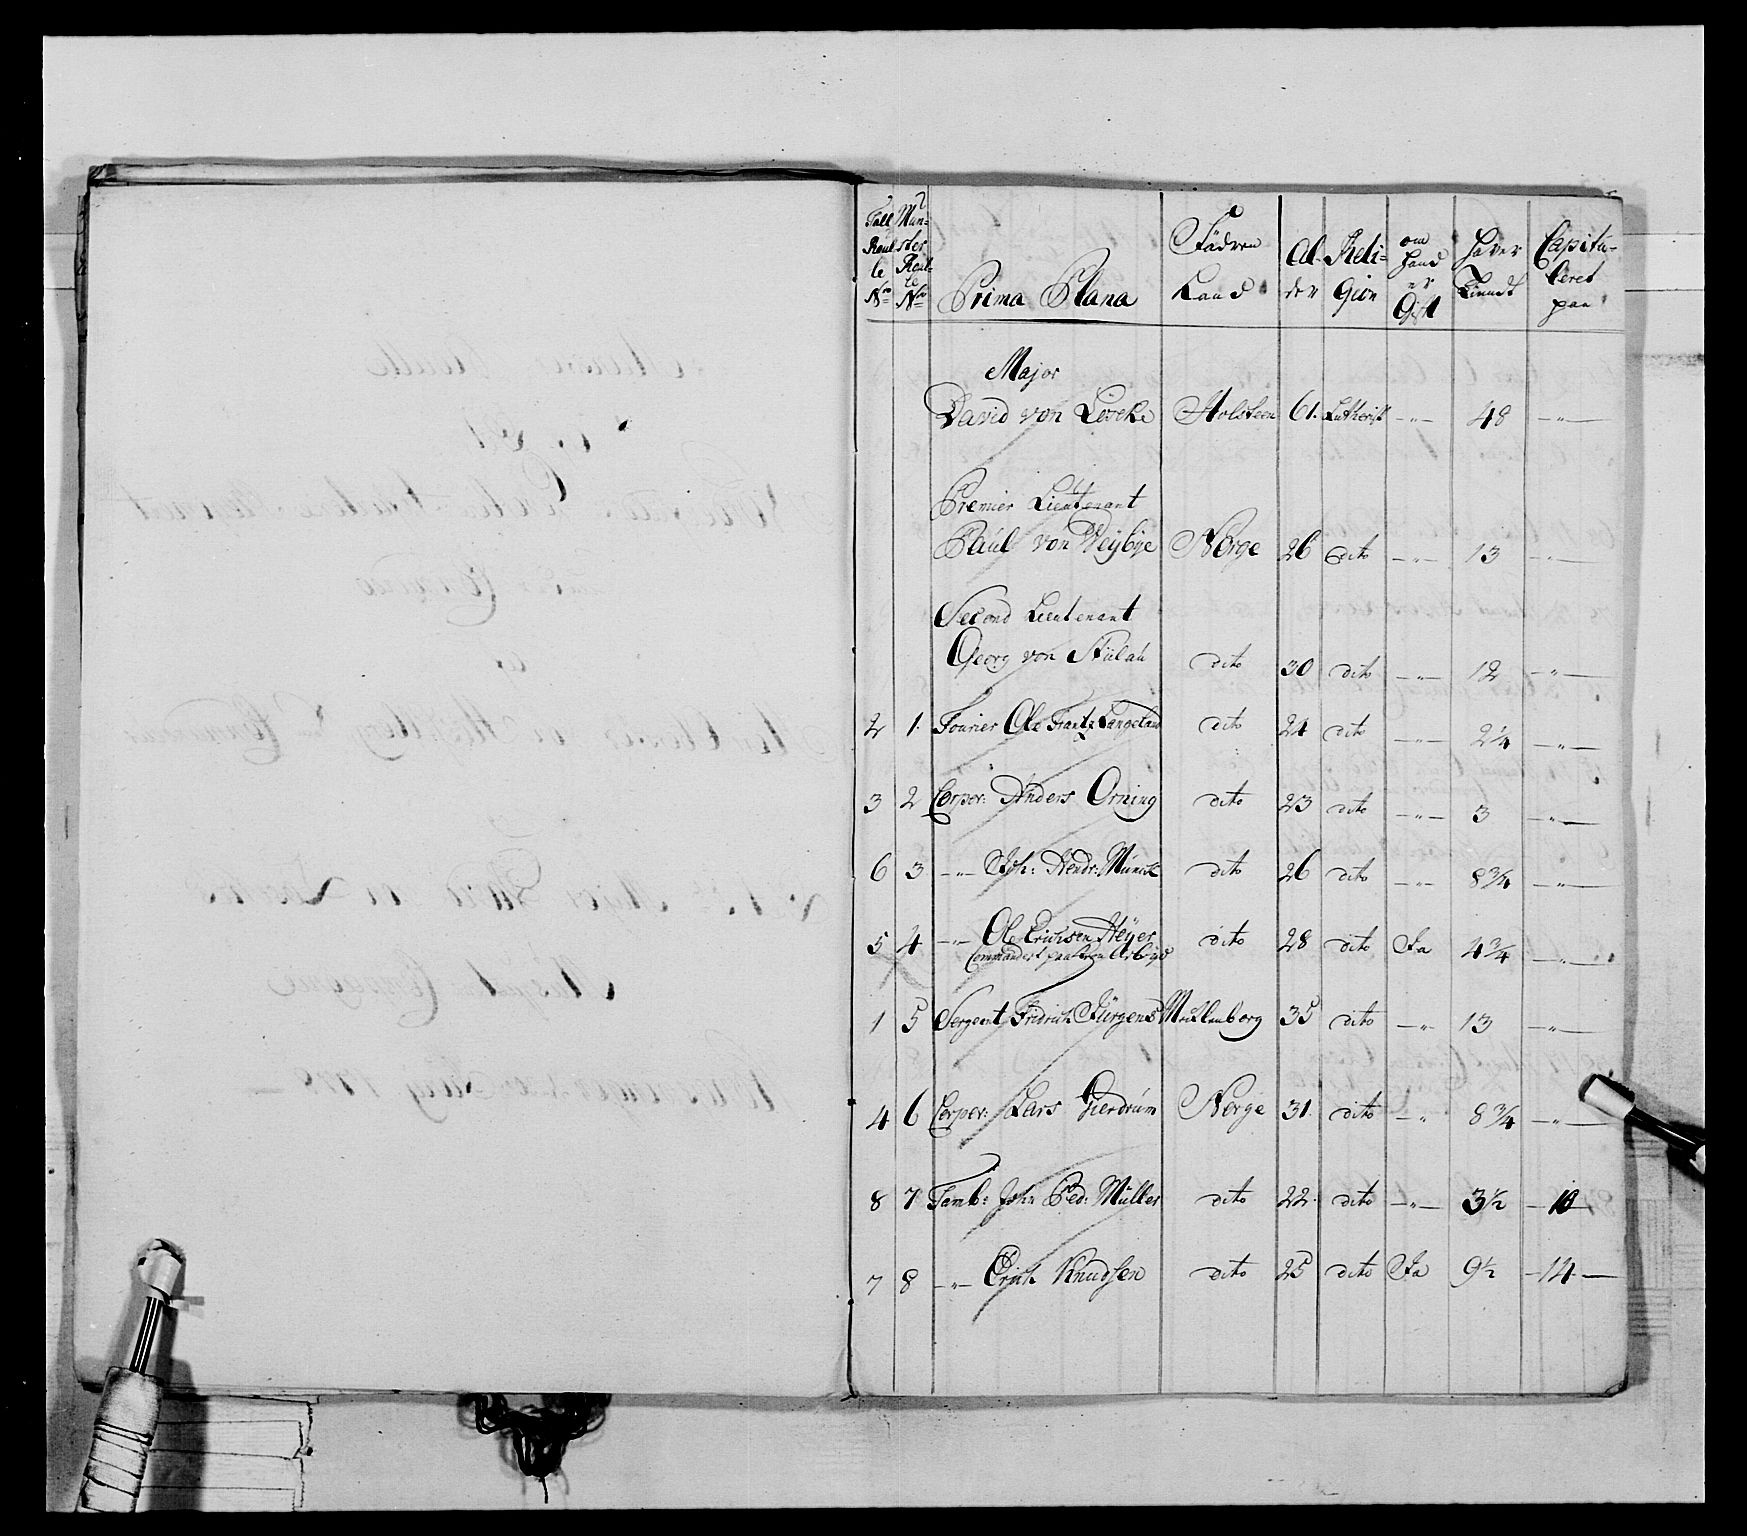 Tall Reulle No | Mun=ster Reulle No | Prima Plana | Födree Land | Alder | Religion | om hand er Gift | Haver Tiendt | Capituleret paa
Major
David von Lercke | Holsteen | 61. | Lutherisk | -"- | 48 | -"-
Premier Lieutenant
Paul von Weybye | Norge | 26 | dito | -"- | 13 | -"-
Second Lieutenant
Georg von Stülau | dito | 30 | dito | -"- | 12 | -"-
2 | 1. | Fourier Ole Frantz Langeland | dito | 24 | dito | -"- | 2 1/4 | -"-
3 | 2 | Corper: Anders Orning | dito | 23 | dito | -"- | 3 | -"-
6 | 3 | -"- Joh: Hendr: Münck | dito | 26 | dito | -"- | 8 3/4 | -"-
5 | 4 | -"- Ole Erichsen Heyer | dito | 28 | dito | Ja | 4 3/4 | -"-
Commandert paa
1 | 5 | Sergeant Fridrich Jürgens | Mecklenborg | 35 | dito | -"- | 13 | -"-
4 | 6 | Corper: Lars Gierdrum | Norge | 31. | dito | -"- | 8 3/4 | -"-
8 | 7 | Tamb: John Ped: Müller | dito | 22. | dito | -"- | 3 1/2 | 10
7 | 8 | -"- Erich Knudsen | dito | 25 | dito | Ja | 9 1/2 | 14